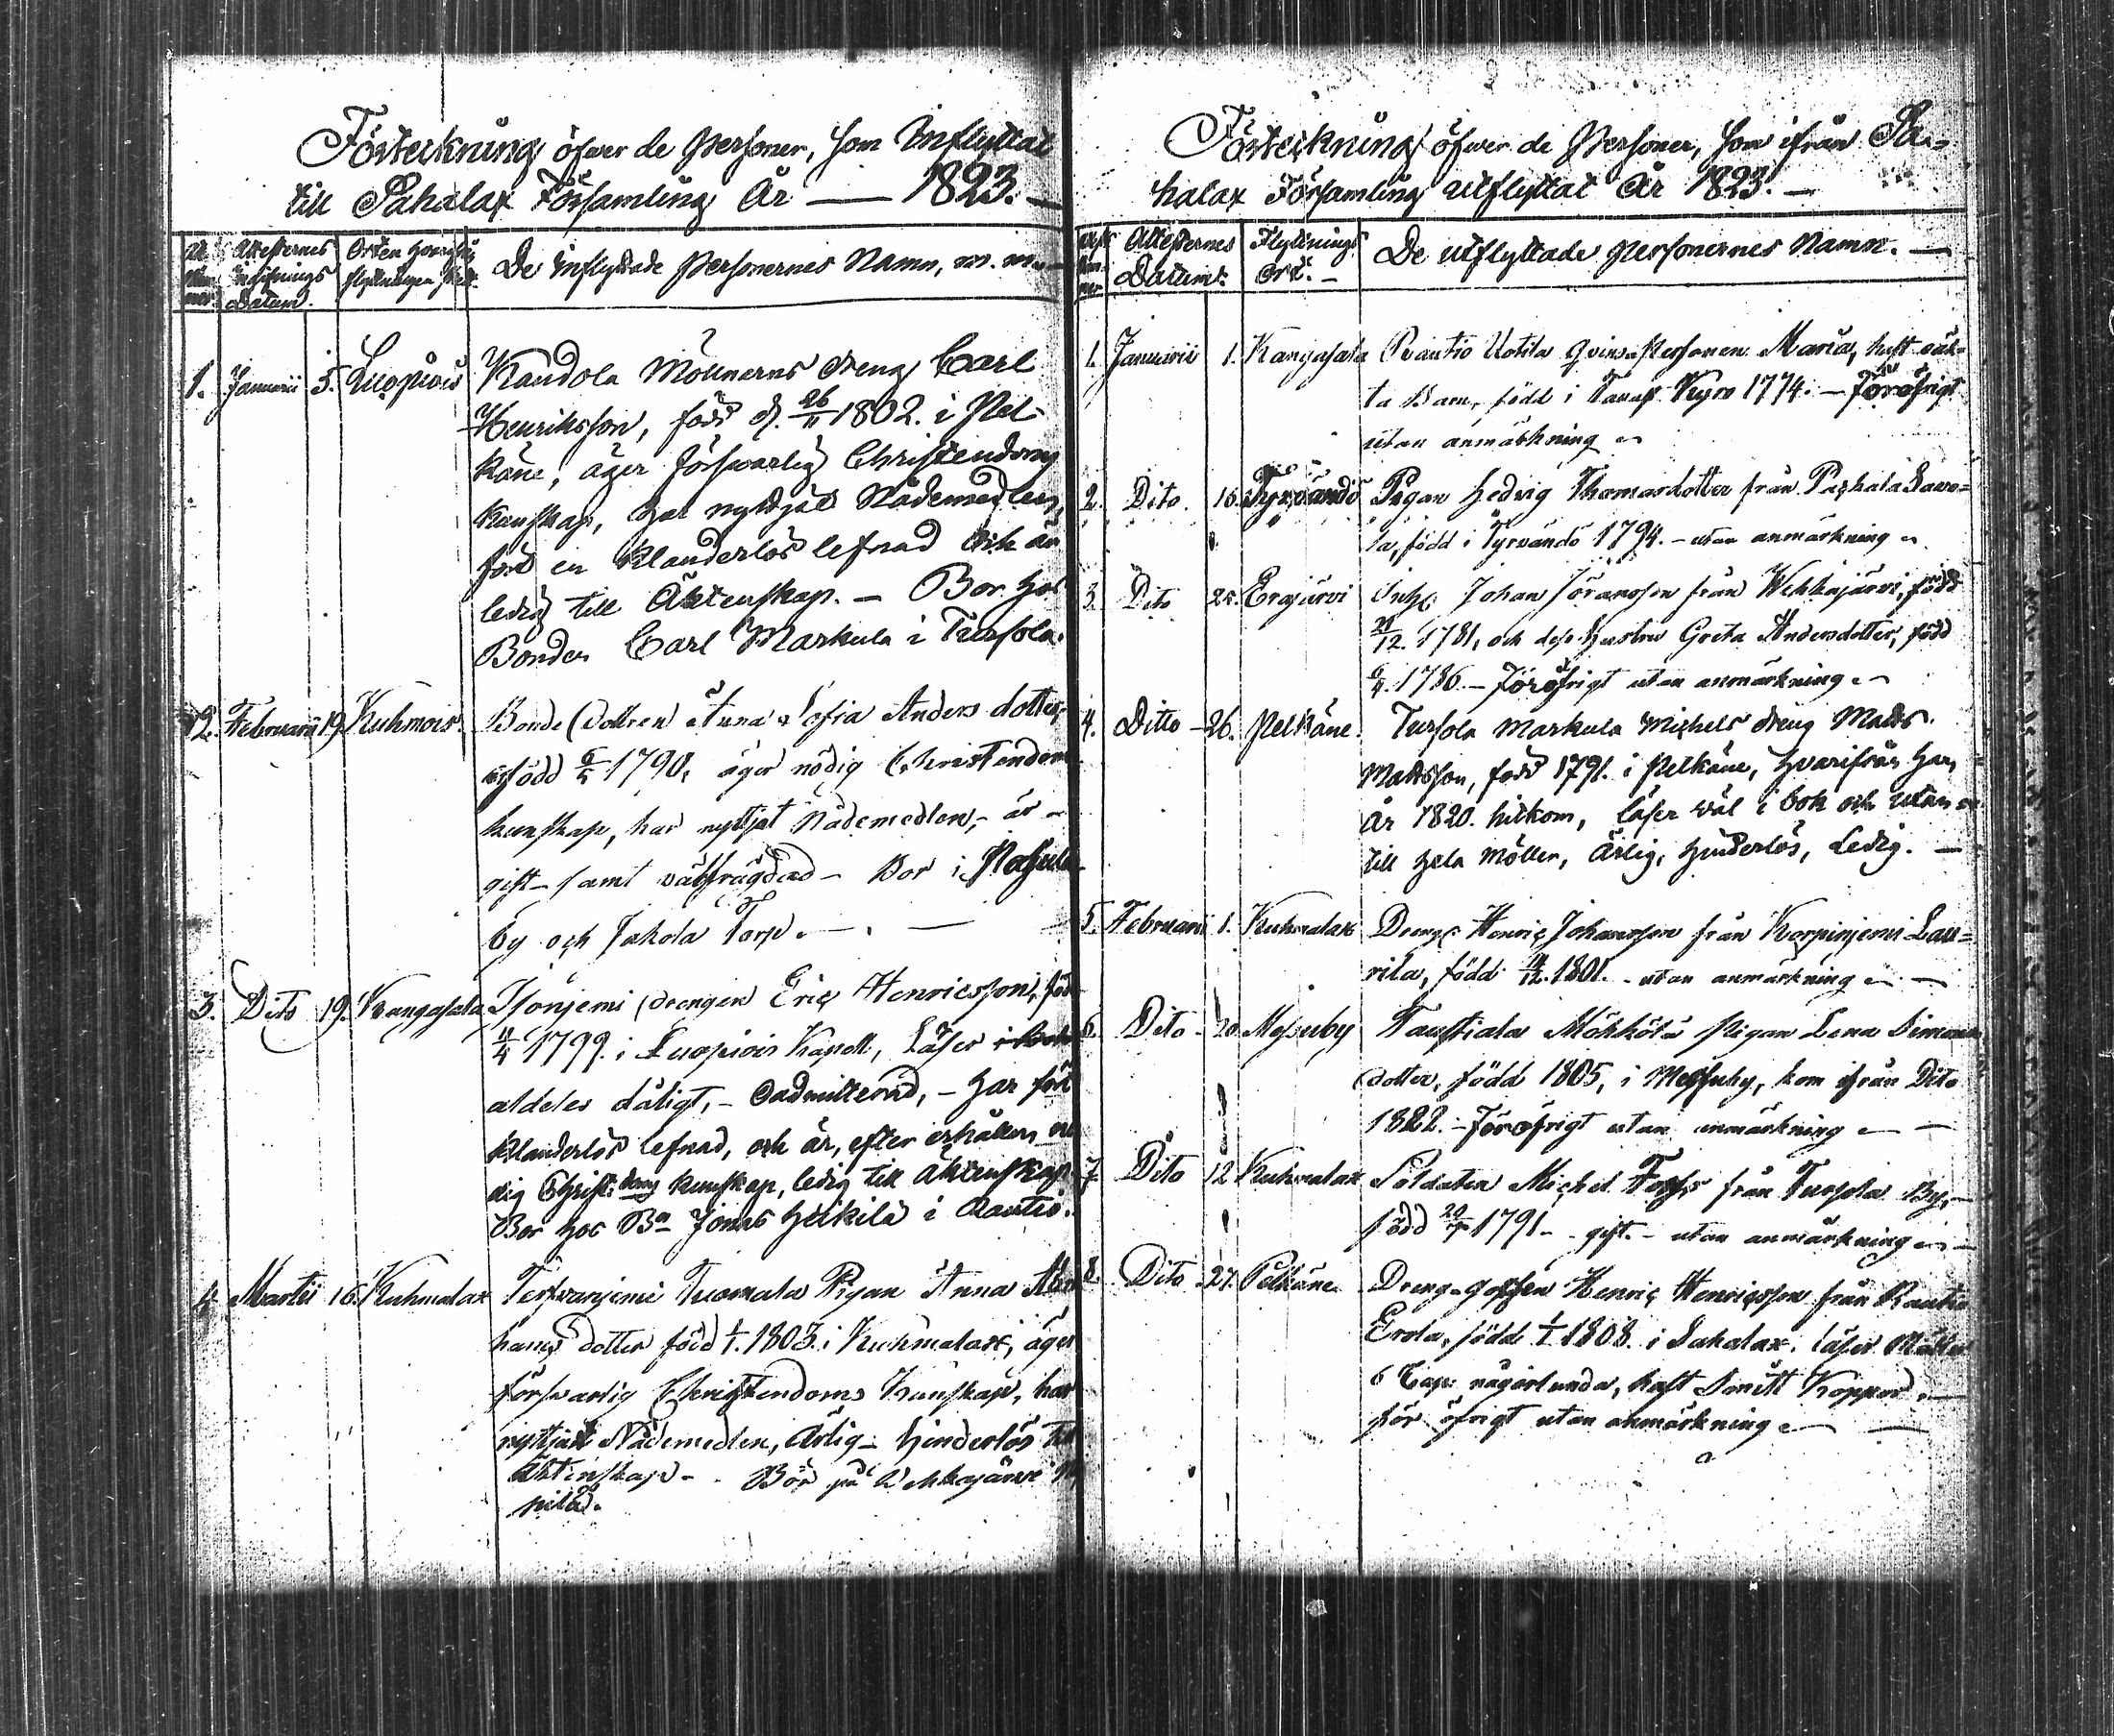 Förteckning öfwer de Personer, som Inflyttat
till Sahalax Församling År — 1823. —
Attesternes Inlefnings Datum.
Orten hvarifrån flyttningen sked.
De inflyttade Personernes Namn, m. m.
1. Januarii 5. Luopiois Kandola Möllnerns dreng Carl
Henriksson, född d. 26/11 1802. i Pel-
käne, äger förswarlig Christendoms
kunskap, har nyttjat Nådemedlen,
fört en klanderlös lefnad och är
ledig till Äktenskap. — Bor hos
Bonden Carl Markula i Tursola.
2. Februarii 19. Kuhmois. Bonde Dottren Anna Sofia Anders dotter,
född 1790, äger nödig Christendoms
kunskap, har nyttjat Nådemedlen, är
gift samt välfrägdad — Bor i
by och Jakola Torp. —
3. Dito 19. Kangasala Isonjemi drengen Eric Henricsson, född
11/4 1799. i Luopiois Kapell, Läser
aldeles dåligt, — Oadmitterad, — har fört
klanderlös lefnad, och är, efter erhållen nö-
dig Christ:doms kunskap, ledig till Äktenskap
Bor hos Bn Jonas Heikilä i Rautio.
4. Martii 16. Kuhmalax Tersvanjemi Tuomala Pigan Anna Abra-
hams dotter född 1/1. 1803. i Kuhmalax, äger
förswarlig Christendoms kunskap, har
nyttjat Nådemedlen, Ärlig — hinderlös till
Äktenskap — Bor på Wehkajärvi
pilä.
Förteckning öfwer de Personer, som ifrån Sa-
halax Församling utflyttat År 1823. —
Attesternes Datum.
Flyttnings Ort. —
De utflyttade Personernes Namn. —
1. Januarii 1. Kangasala Rautio Uotila Qvinspersonen Maria, haft oäk-
ta Barn, född i Tavast Kyro 1774. — Föröfrigt
utan anmärkning
2. Dito 16. Tyrvändö Pigan Hedvig Thomasdotter från Pakkala Sawo-
la, född i Tyrvändö 1794. — utan anmärkning
3. Dito 22. Erajärvi Inh. Johan Jöransson från Wehkajärvi, född
21/12. 1781, och dess Hustru Greta Andersdotter, född
1786. — Föröfrigt utan anmärkning
4. Ditto 26. Pelkäne. Tursola Markula Michels dreng Matts
Mattsson, född 1791. i Pelkäne, hvarifrån han
År 1820. hitkom, läser wäl i bok och utan
till hela Möller, Ärlig, hinderlös, Ledig. —
5. Februarii 1. Kuhmalax Drengen Henric Johansson från Korpinjemi Lau-
rila, född 14/12. 1801. — utan anmärkning —
6. Dito 20. Messuby Taustiala Mökkölä Pigan Lena Simons
dotter, född 1805, i Messuby, kom ifrån Dito
1822. — Föröfrigt utan anmärkning —
7. Dito 12 Kuhmalax Soldaten Michel Forss från Tursola By, —
född 1791 — gift. — utan anmärkning
8. Dito 27. Pelkäne Dreng-gossen Henric Henricsson från Rautio
Erola, född 1/1 1808. i Sahalax. läser Möller
6 Cap: någorlunda, haft Smitt Koppor. —
för öfrigt utan anmärkning —